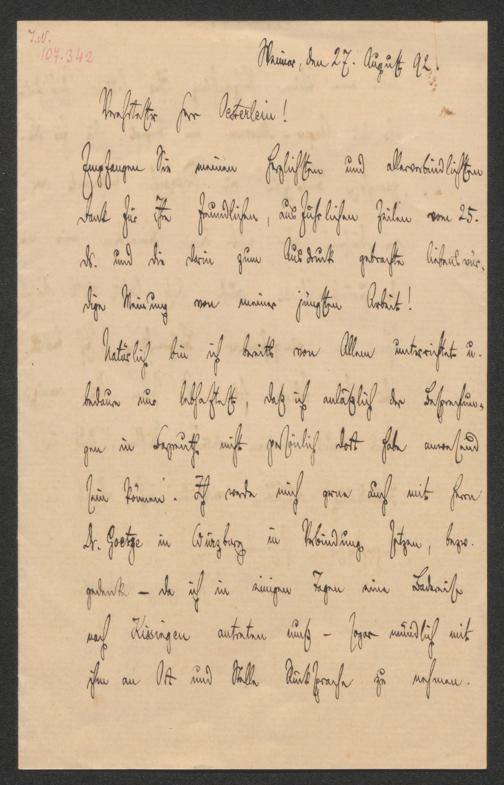 I.N.
107.342
Weimar, den 27. August 92.
Verehrtester Herr Oesterlein!
Empfangen Sie meinen herzlichsten und allerverbindlichsten
Dank für Ihre freundlichen, ausführlichen Zeilen vom 25.
ds. und die darin zum Ausdruck gebrachte liebenswür-
dige Meinung von meiner jüngsten Arbeit!
Natürlich bin ich bereits von Allem unterrichtet u.
bedaure nur lebhaftest, daß ich anläßlich der Besprechun-
gen in Bayreuth nicht persönlich dort habe anwesend
sein können. Ich werde mich gerne auch mit Herrn
Dr. Goetze in Würzburg in Verbindung setzen, bezw.
gedenke – da ich in einigen Tagen eine Badereise
nach Kissingen antreten muß – sogar mündlich mit
ihm an Ort und Stelle Rücksprache zu nehmen.